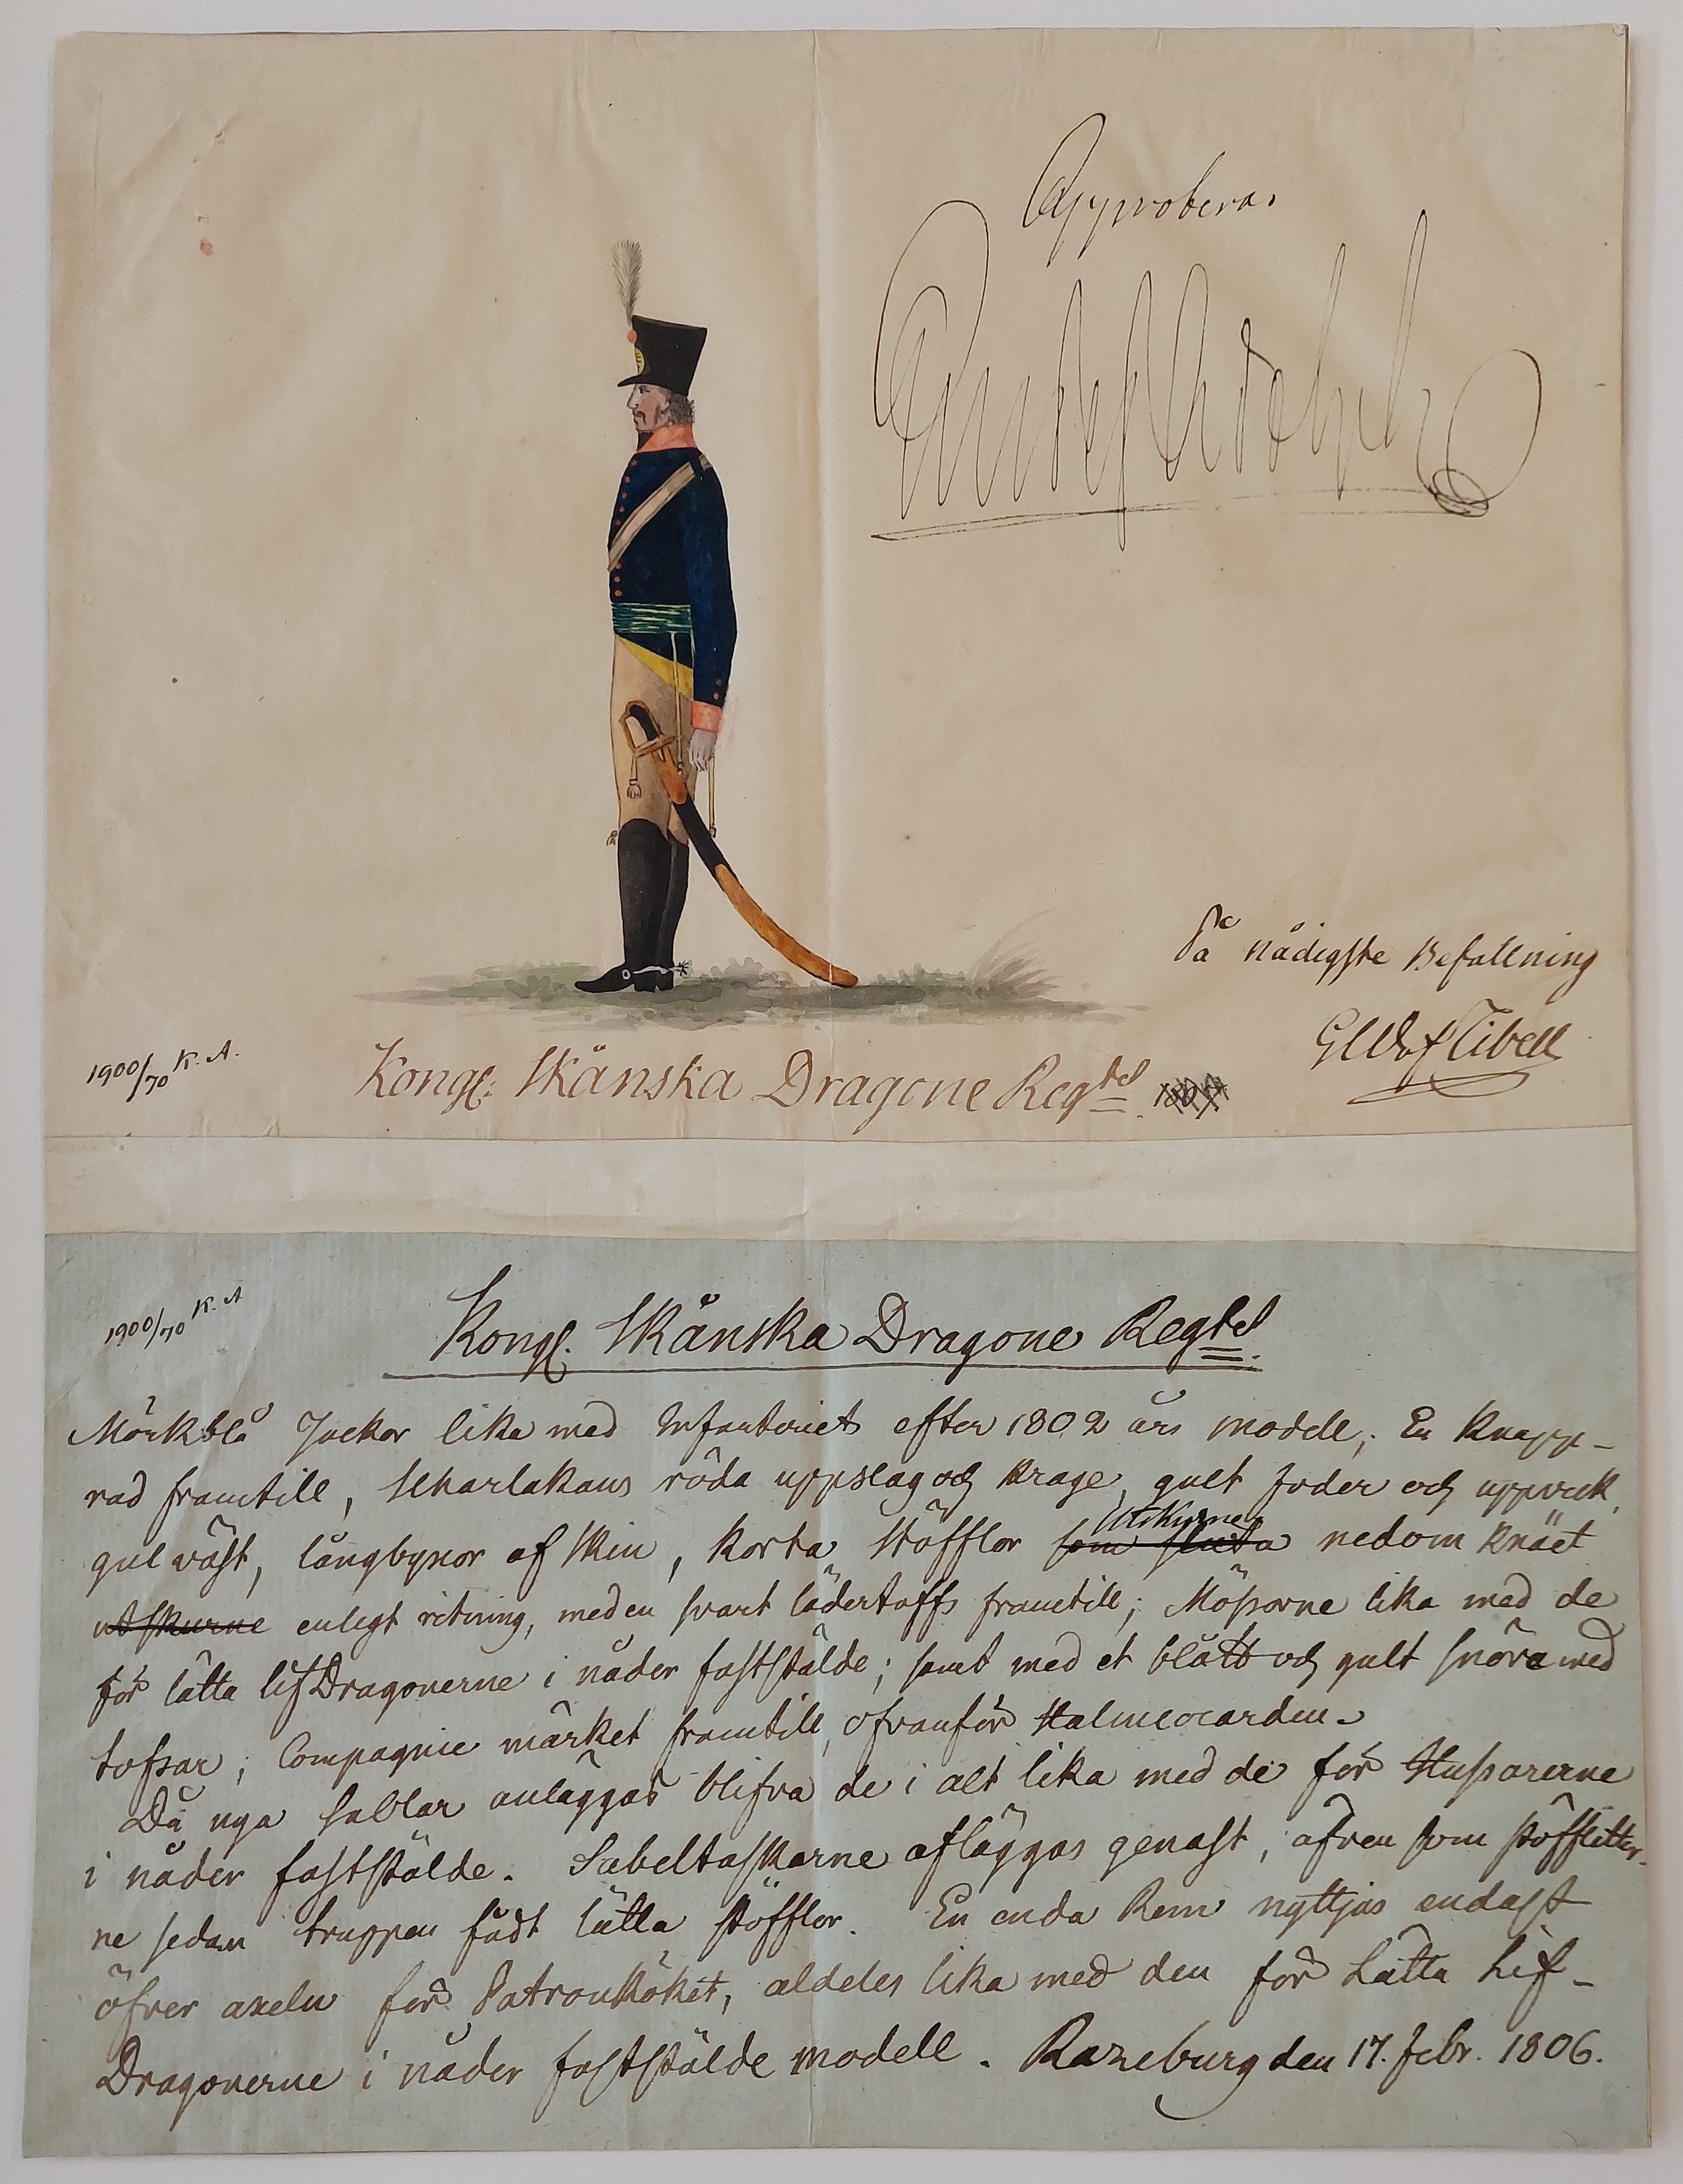 Approberas
Gustaf Adolph
På nådigste Befallning
GWAf Tibell
1900/70 K. A.
Kongl: Skånska Dragone Regtet
1900/70 K. A
Kongl. Skånska Dragone Regtet
Mörkblå Jackor lika med Infanteriet efter 1802 års modell; En Knapp-
rad framtill, scharlakans röda uppslag och krage, gult foder och uppvek,
gul väst, långbyxor af skin, korta stöfflor som sluta utskurne nedom knäet
utskurne enligt ritning, med en svart lädertoffs framtill; Mössorne lika med de
för lätta lifDragonerne i nåder fastställde; samt med et blått och gult snöre med
tofsar; Compagnie märket framtill, ofvanför Halmcocarden.
Då nya sablar anläggas blifva de i alt lika med de för Husarerne
i nåder fastställde. Sabeltaskarne afläggas genast, äfven som stöffletter-
ne sedan truppen fådt lätta stöfflor. En enda Rem nyttjas endast
öfver axeln för Patronköket, aldeles lika med den för Lätta Lif-
Dragonerne i nåder fastställde modell. Razeburg den 17. Febr. 1806.